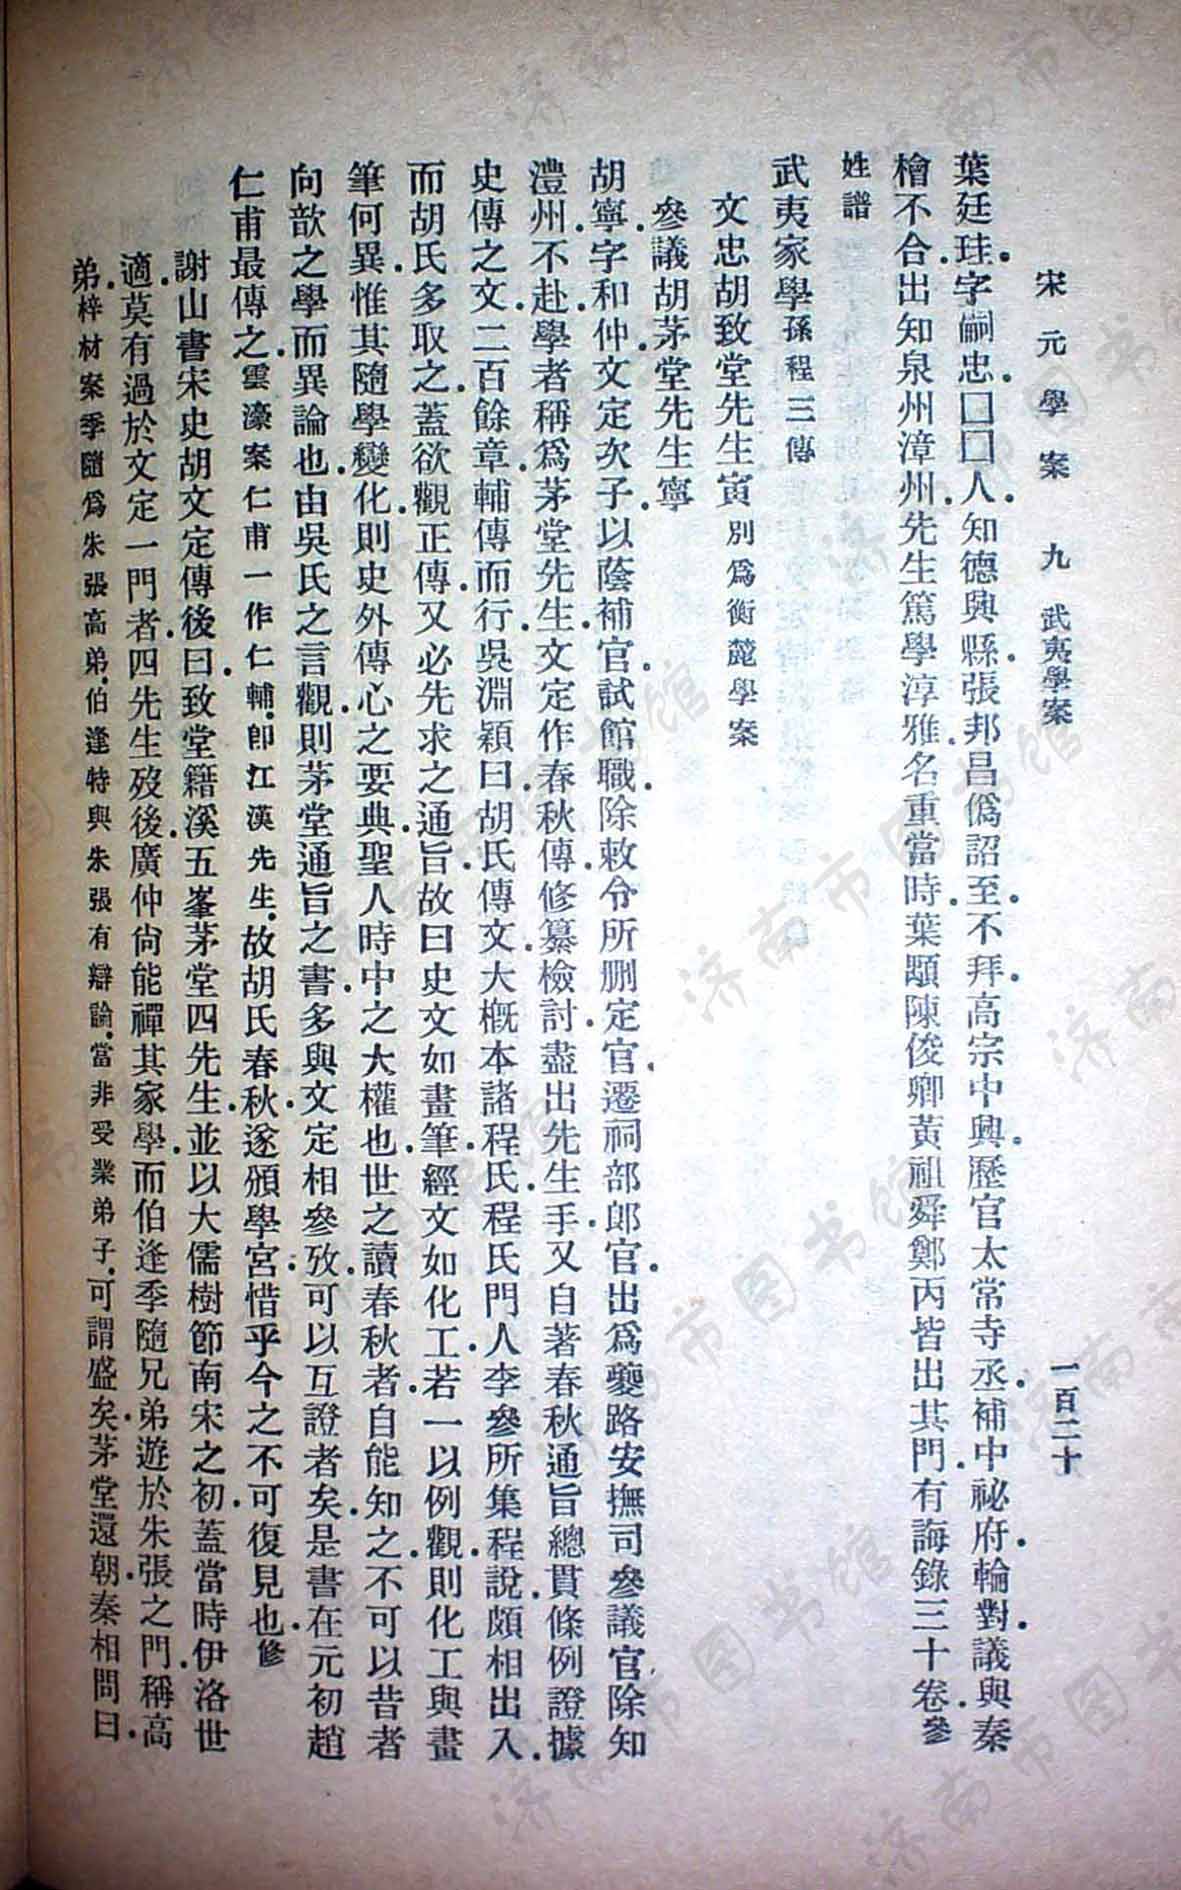 宋元學案 九 武夷學案 一百二十
葉廷珪字嗣忠□□人知德興縣張邦昌僞詔至不拜高宗中興歷官太常寺丞補中祕府輪對議與秦
檜不合出知泉州漳州先生篤學淳雅名重當時葉顒陳俊卿黃祖舜鄭丙皆出其門有誨錄三十卷參
姓譜
武夷家學孫程三傳
文忠胡致堂先生寅別爲衡麓學案
參議胡茅堂先生寧
胡寧字和仲文定次子以蔭補官試館職除敕令所刪定官遷祠部郎官出爲夔路安撫司參議官除知
澧州不赴學者稱爲茅堂先生文定作春秋傳修纂檢討盡出先生手又自著春秋通旨總貫條例證據
史傳之文二百餘章輔傳而行吳淵穎曰胡氏傳文大概本諸程氏程氏門人李參所集程說頗相出入
而胡氏多取之蓋欲觀正傳又必先求之通旨故曰史文如畫筆經文如化工若一以例觀則化工與畫
筆何異惟其隨學變化則史外傳心之要典聖人時中之大權也世之讀春秋者自能知之不可以昔者
向歆之學而異論也由吳氏之言觀則茅堂通旨之書多與文定相參攷可以互證者矣是書在元初趙
仁甫最傳之雲濠案仁甫一作仁輔卽江漢先生故胡氏春秋遂頒學宮惜乎今之不可復見也修
謝山書宋史胡文定傳後曰致堂籍溪五峯茅堂四先生並以大儒樹節南宋之初蓋當時伊洛世
適莫有過於文定一門者四先生歿後廣仲尙能禪其家學而伯逢季隨兄弟遊於朱張之門稱高
弟梓材案季隨爲朱張高弟伯逢特與朱張有辯論當非受業弟子可謂盛矣茅堂還朝秦相問曰